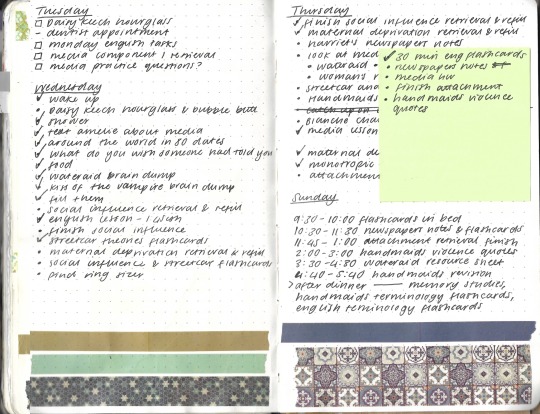 Tuesday
daisy keech hourglass
- dentist appointment
monday english tasks
media component 1 retrieval
media practice questions?
Wednesday
wake up
daisy keech hourglass & bubble butt
shower
text amelie about media
around the world in 80 dates
what do you wish someone had told you
food
wateraid brain dump
kiss of the vampire brain dump
fill them
social influence retrieval & refill
english lesson - 1
finish social influence
streetcar themes flashcards
maternal deprivation retrieval & refill
social influence & streetcar flashcards
pink ring sizer
Thursday
finish social influence retrieval & refill
maternal deprivation retrieval & refill
harriet's newspapers notes
look at med
wateraid
woman's
streetcar and
handmaids
catch up on
blanche cha
media lesson
maternal de
monotropic
attachment
30 min eng flashcards
newspapers notes
media hw
finish attachment
handmaids violence
quotes
Sunday
9:30-10:00 flashcards in bed
10:30-11:30 newspapers notes & flashcards
11:45-1:00 attachment retrieval finish
2:00-3:00 handmaids violence quotes
3:30-4:30 wateraid resource sheet
4:40-5:40 handmaids revision
> after dinner — memory studies,
handmaids terminology flashcards,
english teminology flashcards